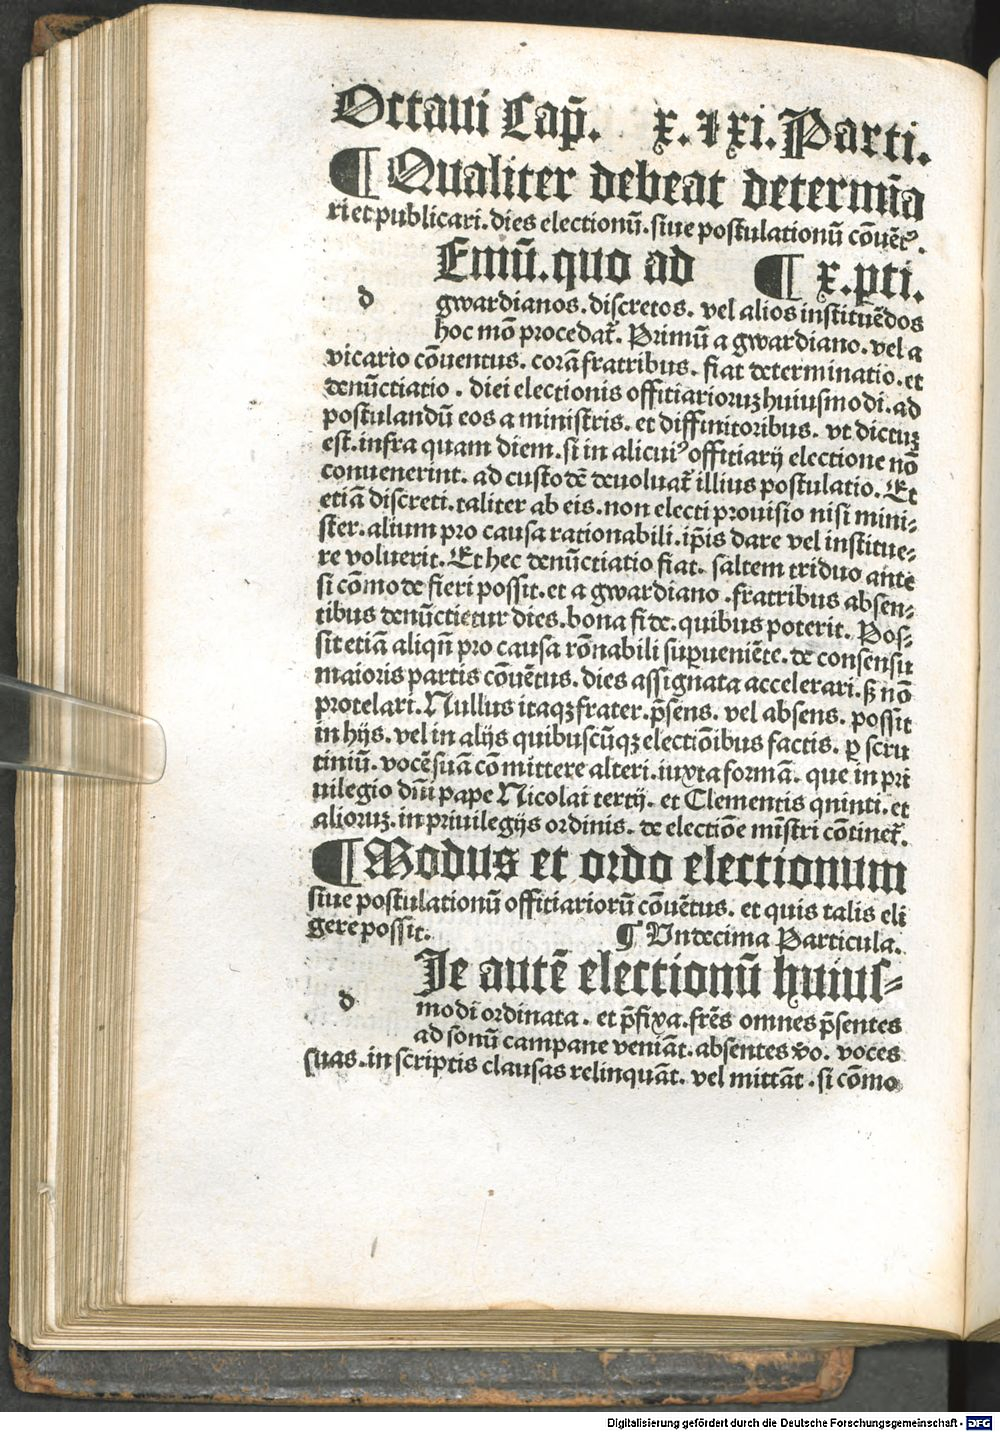 Octaui Cap̄. x. ⁊ xi. Parti.
¶ Qualiter debeat determīa
ri et publicari. dies electionū. siue postulationū cōuētꝰ.
Emū. quo ad ¶ x. pti.
d gwardianos. discretos. vel alios instituēdos
hoc mō procedat᷑. Primū a gwardiano. vel a
vicario cōuentus. corā fratribus. fiat determinatio. et
denūctiatio. diei electionis offitiarioruꝫ huiusmodi. ad
postulandū eos a ministris. et diffinitoribus. vt dictuꝫ
est. infra quam diem. si in alicuiꝰ offitiarij electione nō
conuenerint. ad custodē deuoluat᷑ illius postulatio. Et
etiā discreti. taliter ab eis. non electi prouisio nisi mini-
ster. alium pro causa rationabili. ip̄is dare vel institue-
re voluerit. Et hec denūctiatio fiat. saltem triduo ante
si cōmode fieri possit. et a gwardiano. fratribus absen-
tibus denūctietur dies. bona fide. quibus poterit. Pos-
sit etiā aliqn̄ pro causa rōnabili suꝑueniēte. de consensu
maioris partis cōuētus. dies assignata accelerari. sꝫ nō
protelari. Nullus itaqꝫ frater. p̄sens. vel absens. possit
in hijs. vel in alijs quibuscūqꝫ electiōibus factis. ꝑ scru
tiniū. vocē suā cōmittere alteri. iuxta formā. que in pri
uilegio dn̄i pape Nicolai tertij. et Clementis quinti. et
alioruꝫ. in priuilegijs ordinis. de electiōe mīstri cōtinet᷑.
¶ Modus et ordo electionum
siue postulationū offitiariorū cōuētus. et quis talis eli
gere possit. ¶ Undecima Particula.
Ie autē electionū huius-
d modi ordinata. et p̄fixa. fr̄es omnes p̄sentes
ad sonū campane veniāt. absentes ꝟo. voces
suas. in scriptis clausas relinquāt. vel mittāt. si cōmo
Digitalisierung gefördert durch die Deutsche Forschungsgemeinschaft - DFG